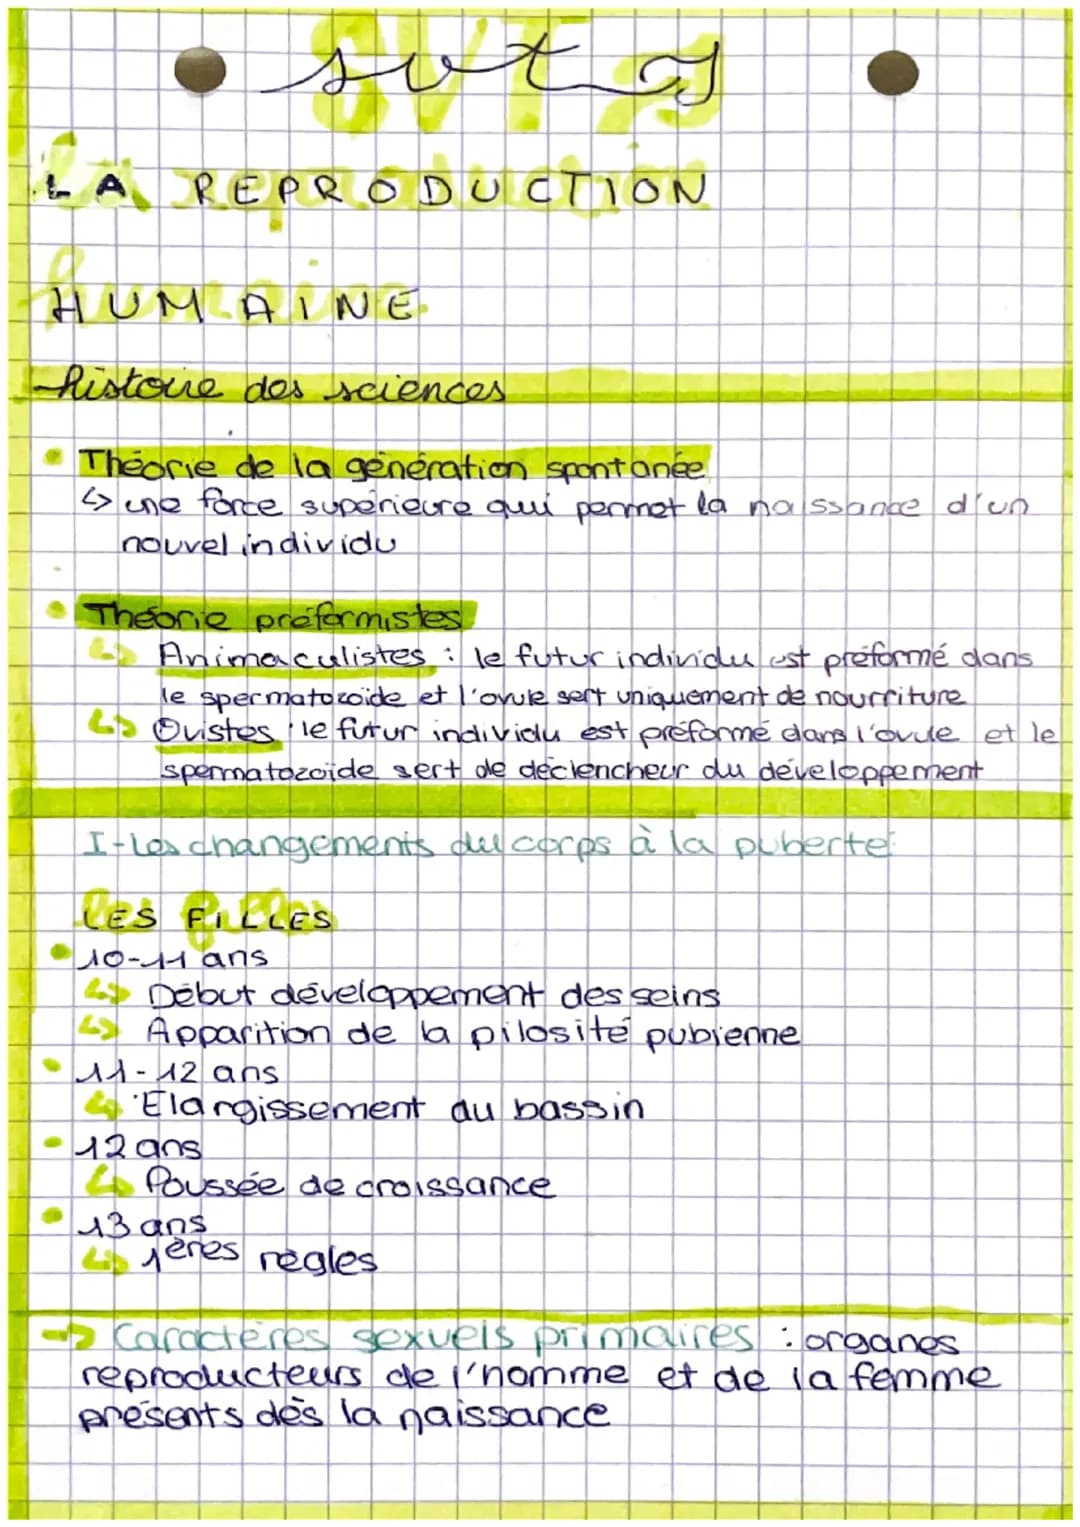 svt
LA REPRODUCTION
HUMAINE
histoire des sciences
Théorie de la génération spontanée
↳ une force supérieure qui permet la naissance d'un
nouvel individu
Théorie préformistes
↳ Animaculistes : le futur individu est préformé dans
le spermatozoïde et l'ovule sert uniquement de nourriture
↳ Ovistes : le futur individu est préformé dans l'ovule et le
spermatozoïde sert de déclencheur du développement
I-Les changements du corps à la puberté
LES FILLES
10-11 ans
↳ Début développement des seins
↳ Apparition de la pilosité pubienne
11-12 ans
↳ Elargissement du bassin
12 ans
↳ Poussée de croissance
13 ans
↳ 1ères règles
→ Caractères sexuels primaires : organes
reproducteurs de l'homme et de la femme
présents dès la naissance